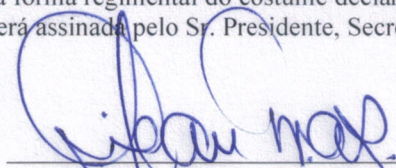 forma regimental do costume declar
erá assinada pelo Sr. Presidente, Secre